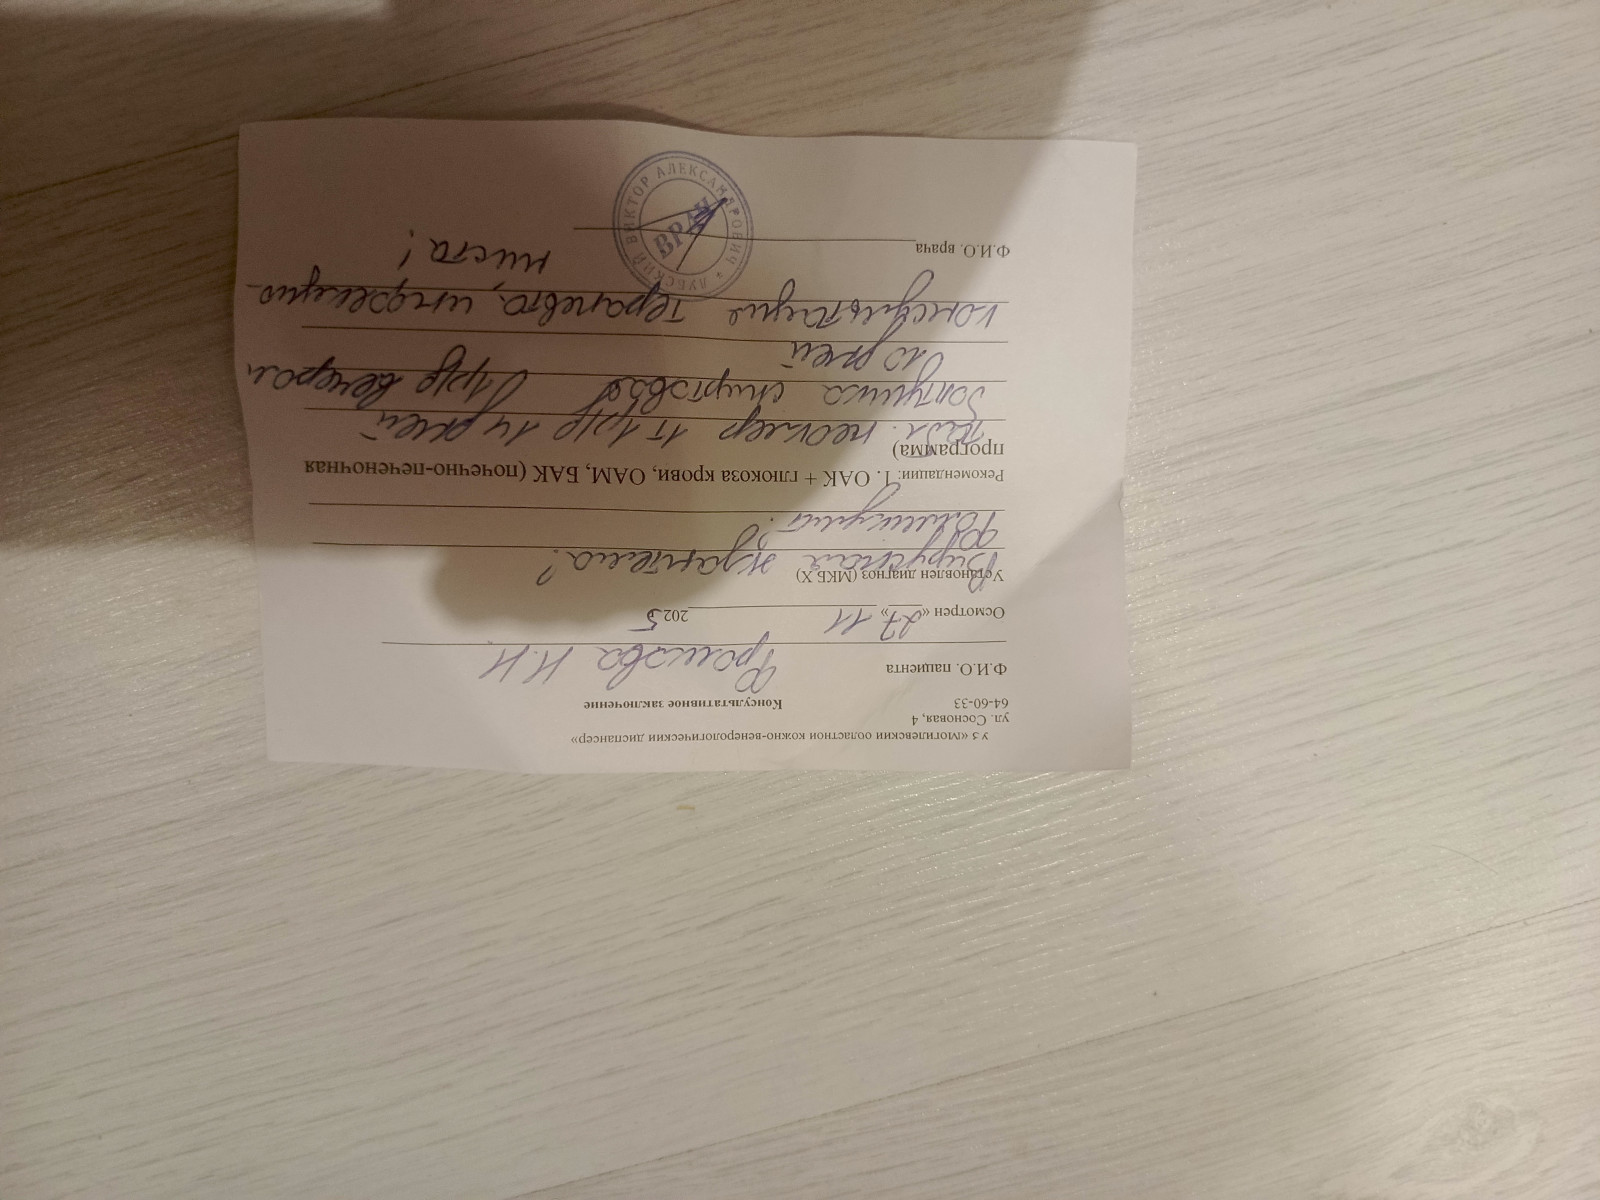 УЗ «Могилевский областной кожно-венерологический диспансер»
ул. Сосновая, 4
64-60-33
Консультативное заключение
Ф.И.О. пациента Фролова Н.Н
Осмотрен «27» 11 2025
Установлен диагноз (МКБ X)
Вирусная экзантема?
Рекомендации: 1. ОАК + глюкоза крови, ОАМ, БАК (почечно-печеночная
программа)
табл. неоклер 1т 1р/д 14 дней
болтушка спиртовая 1р/д вечером
10 дней
консультация терапевта, инфекцио
ниста!
Ф.И.О. врача
ЛУБСКИЙ ВИКТОР АЛЕКСАНДРОВИЧ
ВРАЧ